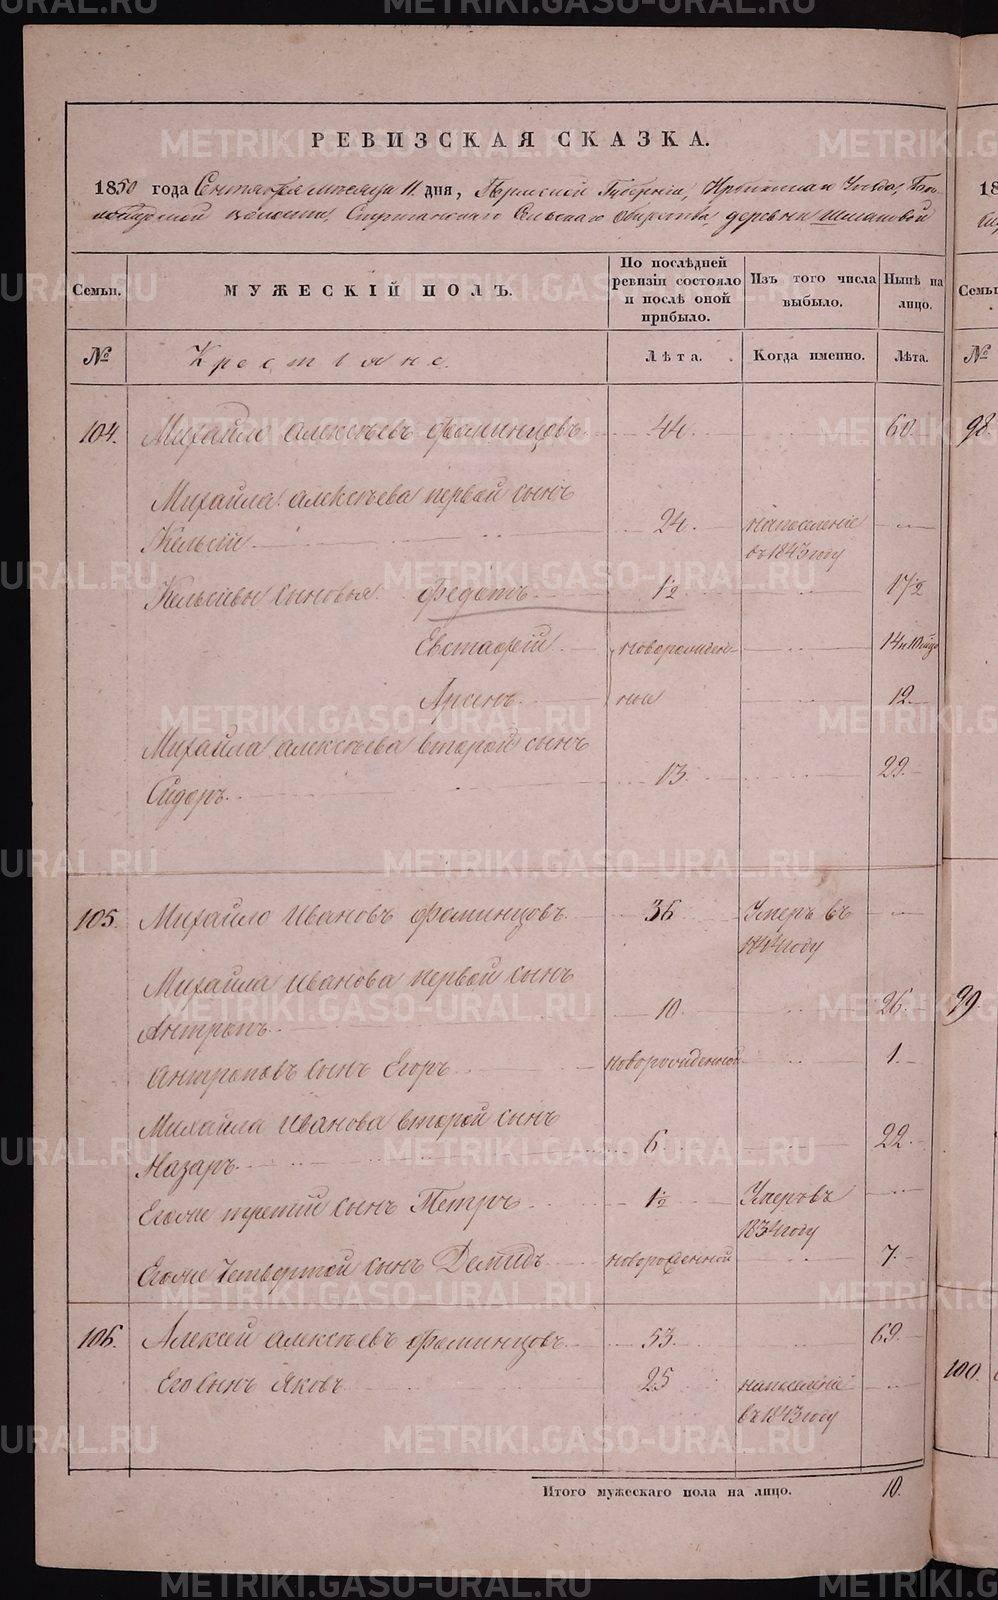 РЕВИЗСКАЯ СКАЗКА.
1850 года Сентября месяца 11 дня, Пермской Губернии, Ирбитскаго Уезда,
волости, Сельскаго общества, деревни
Семьи. МУЖЕСКІЙ ПОЛЪ. По послѣдней ревизіи состояло и послѣ оной прибыло. Изъ того числа выбыло. Нынѣ на лицо.
№ Крестьяне. Лѣта. Когда именно. Лѣта.
104. Михайло Алексѣевъ Фоминцовъ. 44. 60.
Михайла Алексѣева первой сынъ
Кельсій 24. на поселеніе —
въ 1843 году
Кельсіевы сыновья Федотъ 1½ 17½
Евстафій новорожден- 14
Арсенъ ныи 12
Михайла Алексѣева второй сынъ
Сидоръ. 13. 29.
105. Михайло Ивановъ Фоминцовъ 36 Умеръ въ —
году
Михайла Иванова первой сынъ
Антропъ 10. 26.
Антроповъ сынъ Егоръ новорожденной 1.
Михайла Иванова второй сынъ
Назаръ 6 22
Егоже третій сынъ Петръ 1½ Умеръ въ
1834 году
Егоже Четвертой сынъ Демидъ новорожденной 7.
106. Алексей Алексѣевъ Фоминцовъ 53. 69.
Его сынъ Яковъ 25 на поселеніе
въ 1843 году
Итого мужескаго пола на лицо. 10.
18
Семьи
№
98.
99.
100.
METRIKI.GASO-URAL.RU